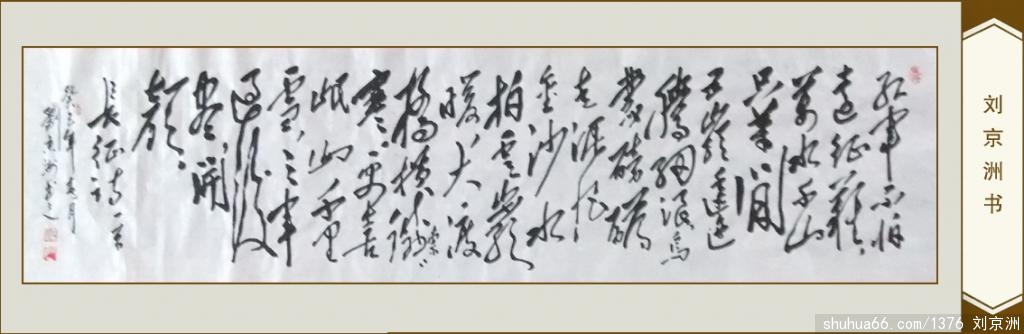 红军不怕
远征难
万水千山
只等闲
五岭逶迤
腾细浪乌
蒙磅礴
走泥丸
金沙水
拍云崖
暖大渡
桥横铁索
寒更喜
岷山千里
雪三军
过后
尽开
颜
长征诗一首
癸巳年
刘京洲书
刘京洲书
shuhua66.com/1376 刘京洲